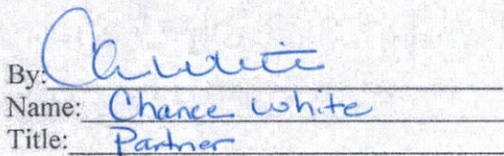 By:
Name: Chance White
Title: Partner